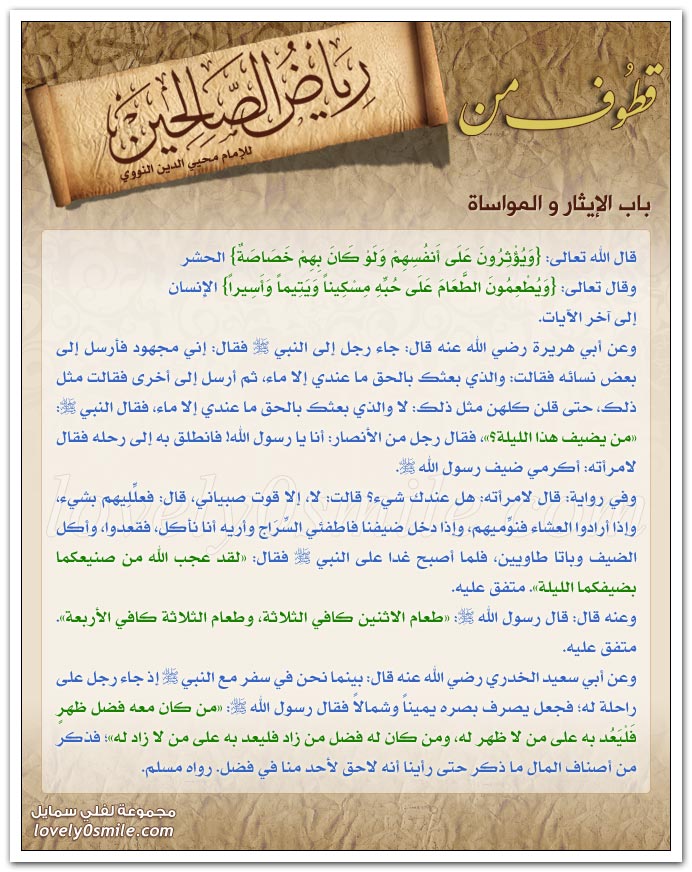 قطوف من
رِيَاضُ الصَّالِحِيْنَ
للإمام محيي الدين النووي
باب الإيثار و المواساة
قال الله تعالى: {وَيُؤْثِرُونَ عَلَى أَنفُسِهِمْ وَلَوْ كَانَ بِهِمْ خَصَاصَةٌ} الحشر
وقال تعالى: {وَيُطْعِمُون الطَّعَامَ عَلَى حُبِّهِ مِسْكِيناً وَيَتِيماً وَأَسِيراً} الإنسان
إلى آخر الآيات.
وعن أبي هريرة رضي الله عنه قال: جاء رجل إلى النبي ﷺ فقال: إني مجهود فأرسل إلى
بعض نسائه فقالت: والذي بعثك بالحق ما عندي إلا ماء، ثم أرسل إلى أخرى فقالت مثل
ذلك، حتى قلن كلهن مثل ذلك: لا والذي بعثك بالحق ما عندي إلا ماء، فقال النبي ﷺ:
«من يضيف هذا الليلة؟»، فقال رجل من الأنصار: أنا يا رسول الله! فانطلق به إلى رحله فقال
لامرأته: أكرمي ضيف رسول الله ﷺ.
وفي رواية: قال لامرأته: هل عندك شيء؟ قالت: لا، إلا قوت صبياني، قال: فعلِّليهم بشيء،
وإذا أرادوا العشاء فنوِّميهم، وإذا دخل ضيفنا فاطفئي السِّرَاج وأريه أنا نأكل، فقعدوا، وأكل
الضيف وباتا طاويين، فلما أصبح غدا على النبي ﷺ فقال: «لقد عجب الله من صنيعكما
بضيفكما الليلة». متفق عليه.
وعنه قال: قال رسول الله ﷺ: «طعام الاثنين كافي الثلاثة، وطعام الثلاثة كافي الأربعة».
متفق عليه.
وعن أبي سعيد الخدري رضي الله عنه قال: بينما نحن في سفر مع النبي ﷺ إذ جاء رجل على
راحلة له؛ فجعل يصرف بصره يميناً وشمالاً فقال رسول الله ﷺ: «من كان معه فضل ظهرٍ
فَلْيَعُد به على من لا ظهر له، ومن كان له فضل من زاد فليعد به على من لا زاد له»؛ فذكر
من أصناف المال ما ذكر حتى رأينا أنه لاحق لأحد منا في فضل. رواه مسلم.
مجموعة لفلي سمايل
lovely0smile.com
lovely0smile.com